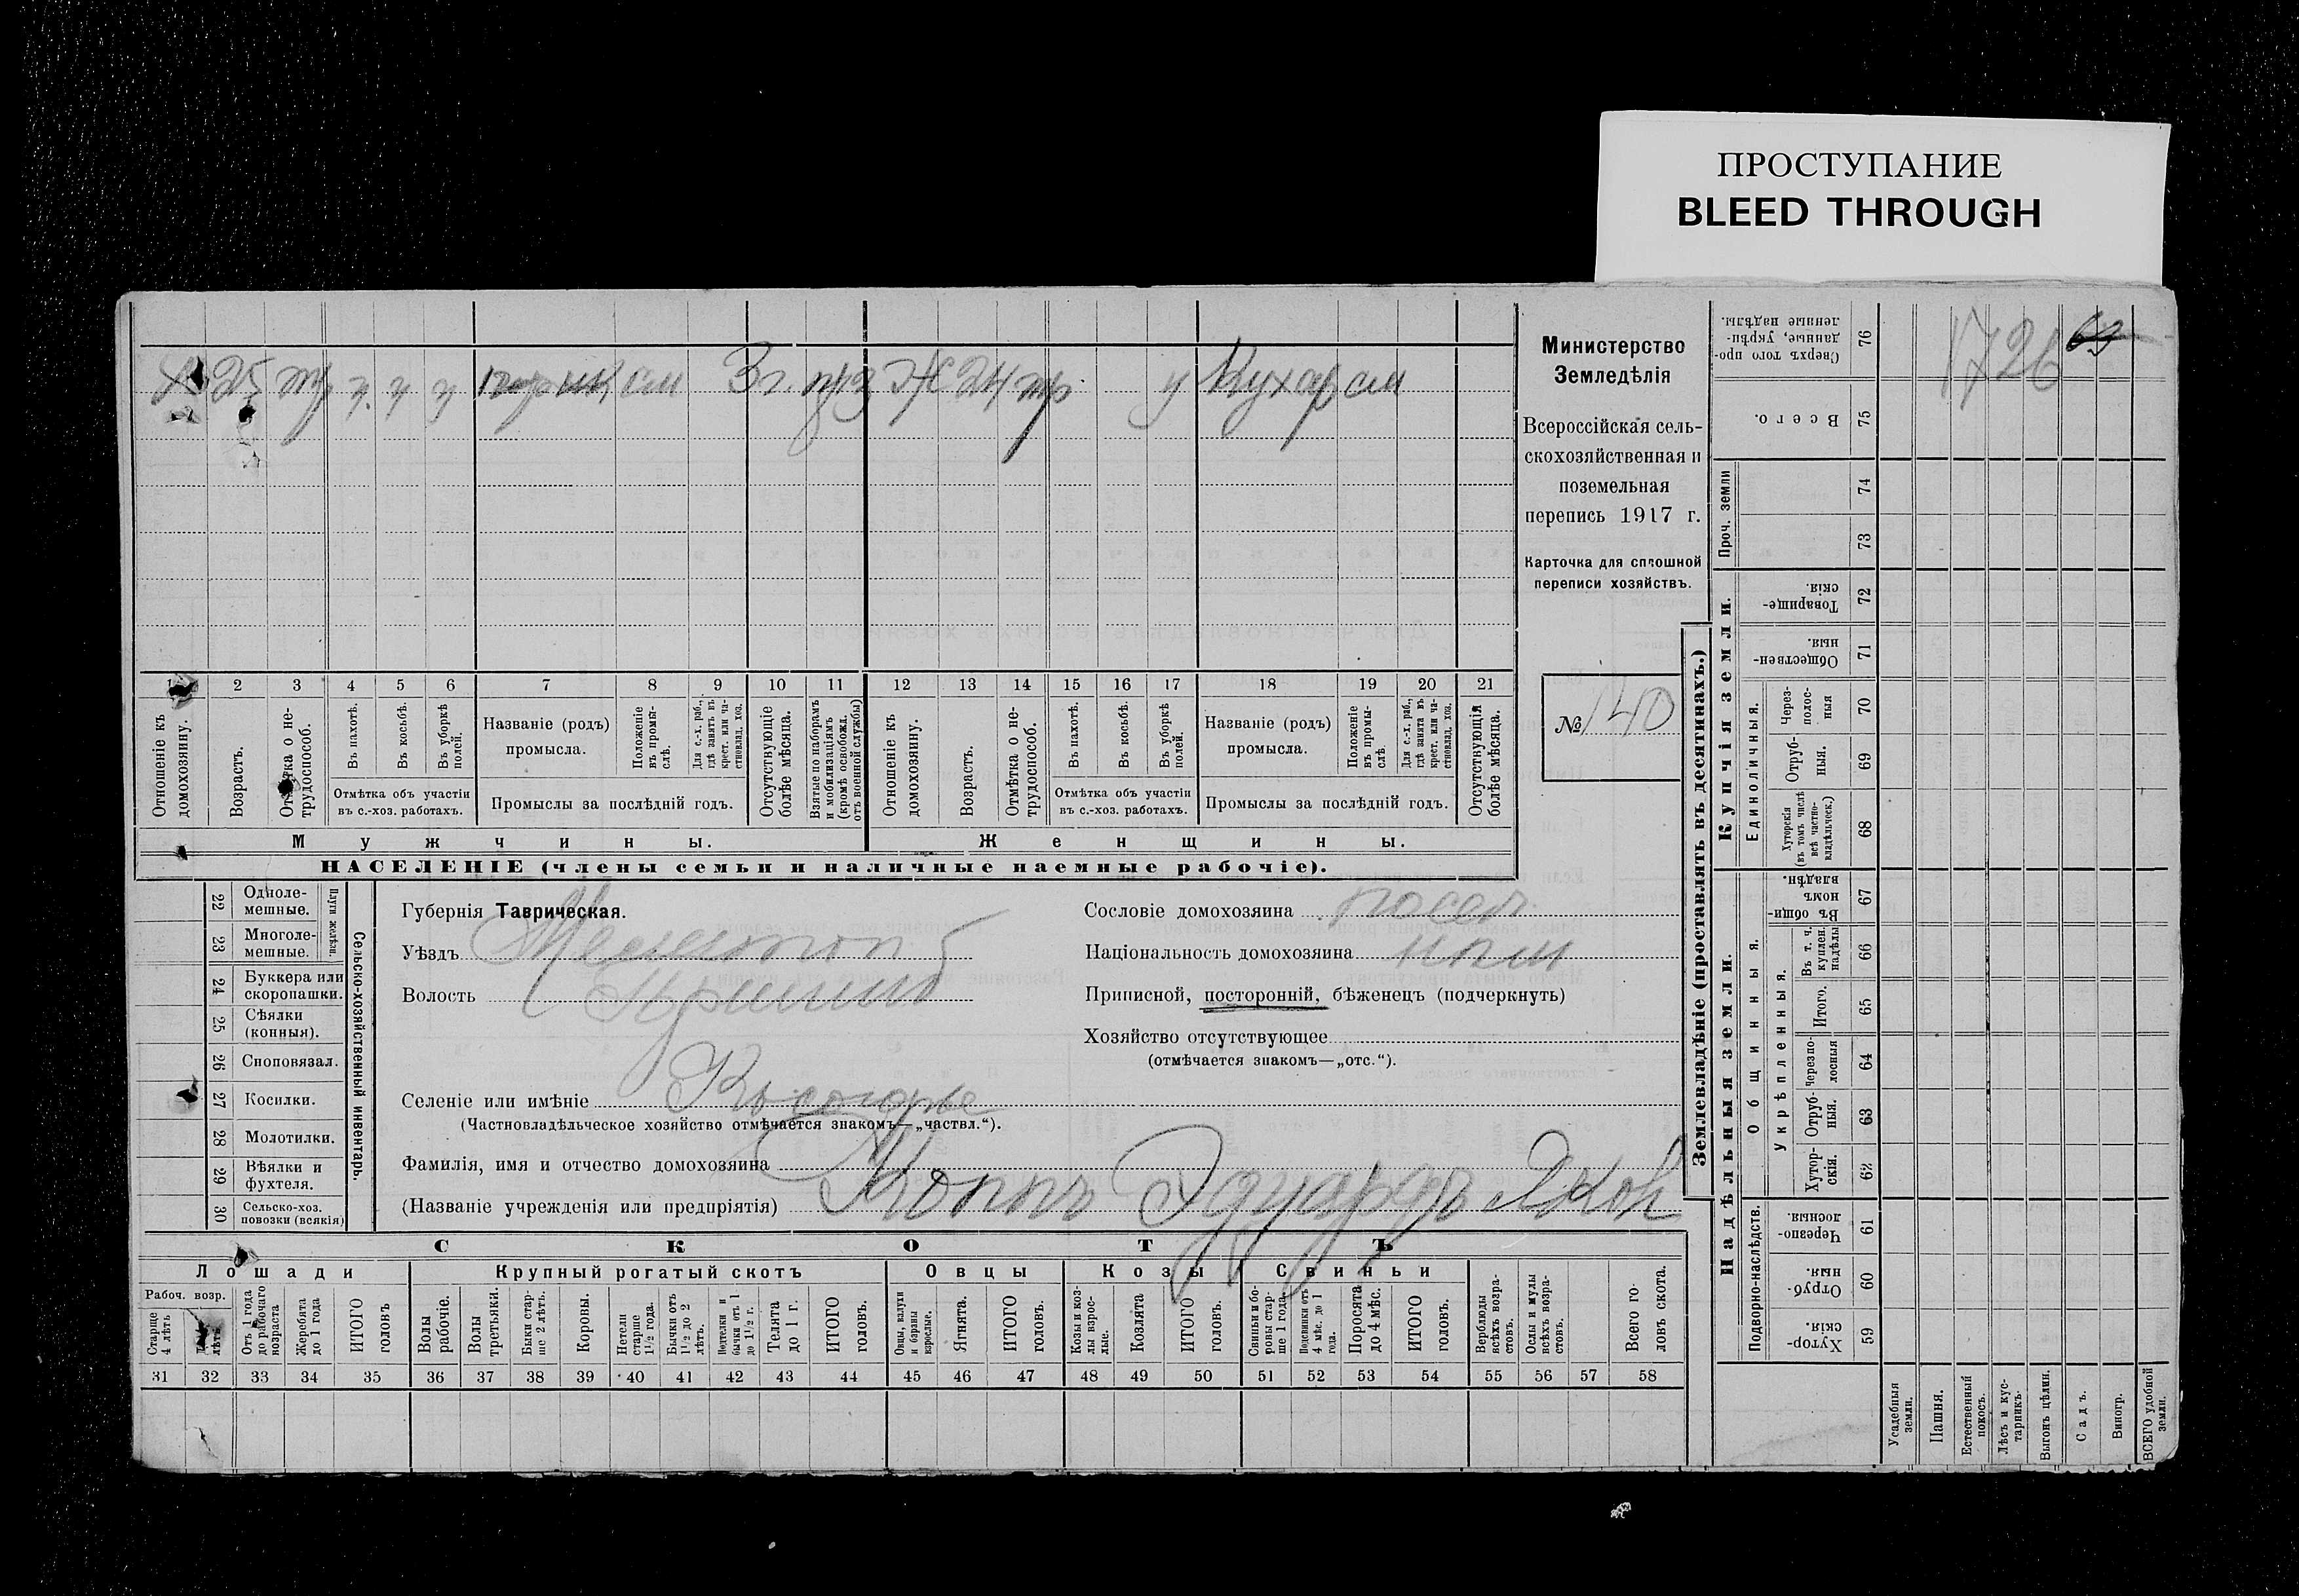 ПРОСТУПАНИЕ
BLEED THROUGH
25 тр ч. ч ч см 3 г. Ж 24 тр у Кухар см
1 2 3 4 5 6 7 8 9 10 11 12 13 14 15 16 17 18 19 20 21
Отношеніе къ домохозяину.
Возрастъ.
Отмѣтка о нетрудоспособ.
Въ пахотѣ.
Въ косьбѣ.
Въ уборкѣ полей.
Отмѣтка объ участіи въ с.-хоз. работахъ.
Названіе (родъ) промысла.
Положеніе въ промыслѣ.
Для с.-х. раб., гдѣ занятъ въ крест. или частновлад. хоз.
Промыслы за послѣдній годъ.
Отсутствующіе болѣе мѣсяца.
Взятые по наборамъ и мобилизаціямъ (кромѣ освобожд. отъ военной службы)
Отношеніе къ домохозяину.
Возрастъ.
Отмѣтка о нетрудоспособ.
Въ пахотѣ.
Въ косьбѣ.
Въ уборкѣ полей.
Отмѣтка объ участіи въ с.-хоз. работахъ.
Названіе (родъ) промысла.
Положеніе въ промыслѣ.
Для с.-х. раб., гдѣ занята въ крест. или частновлад. хоз.
Промыслы за послѣдній годъ.
Отсутствующія болѣе мѣсяца.
Мужчины.
Женщины.
НАСЕЛЕНІЕ (члены семьи и наличные наемные рабочіе).
Министерство
Земледѣлія
Всероссійская сель-
скохозяйственная и
поземельная
перепись 1917 г.
Карточка для сплошной
переписи хозяйствъ.
№ 140
22 Одноле-
мешные.
23 Многоле-
мешные.
Плуги желѣзн.
24 Буккера или
скоропашки.
25 Сѣялки
(конныя).
26 Сноповязал.
27 Косилки.
28 Молотилки.
29 Вѣялки и
фухтеля.
30 Сельско-хоз.
повозки (всякія)
Сельско-хозяйственный инвентарь.
Губернія Таврическая.
Уѣздъ Мелитоп
Волость Пришиб
Селеніе или имѣніе
(Частновладѣльческое хозяйство отмѣчается знакомъ—„частвл.“).
Фамилія, имя и отчество домохозяина
(Названіе учрежденія или предпріятія) Коппъ Эдуардъ Яков
Сословіе домохозяина посел.
Національность домохозяина нѣм
Приписной, посторонній, бѣженецъ (подчеркнуть)
Хозяйство отсутствующее
(отмѣчается знакомъ—„отс.“).
СКОТЪ
Лошади
Крупный рогатый скотъ
Овцы
Козы
Свиньи
Рабоч. возр.
Старше 4 лѣтъ
лѣтъ
Отъ 1 года до рабочаго возраста
Жеребята до 1 года
ИТОГО головъ
Волы рабочіе.
Волы третьяки.
Быки старше 2 лѣтъ.
Коровы.
Нетели старше 1½ года.
Бычки отъ 1½ до 2 лѣтъ.
Подтелки и бычки отъ 1 до 1½ г.
Телята до 1 г.
ИТОГО головъ.
Овцы, валухи и бараны взрослые.
Ягнята.
ИТОГО головъ.
Козы и козлы взрослые.
Козлята
ИТОГО головъ.
Свиньи и боровы старше 1 года.
Подсвинки отъ 4 мѣс. до 1 года.
Поросята до 4 мѣс.
ИТОГО головъ.
Верблюды всѣхъ возрастовъ.
Ослы и мулы всѣхъ возрастовъ.
Всего головъ скота.
31 32 33 34 35 36 37 38 39 40 41 42 43 44 45 46 47 48 49 50 51 52 53 54 55 56 57 58
Землевладѣніе (проставлять въ десятинахъ.)
Надѣльныя земли.
Купчія земли.
Проч. земли
Подворно-наслѣдств.
Общинныя.
Укрѣпленныя.
Единоличныя.
Сверхъ того проданные, укрѣпленные надѣлы. 76
Всего. 75
74
73
Товарищескія. 72
Общественныя. 71
Черезполосныя 70
Отрубныя. 69
Хуторскія (въ томъ числѣ всѣ частновладѣльческ.) 68
Въ общинномъ владѣн. 67
Въ т. ч. куплен. надѣлы 66
Итого. 65
Черезполосныя 64
Отрубныя. 63
Хуторскія. 62
Черезполосныя. 61
Отрубныя. 60
Хуторскія. 59
1726
Усадебныя земли.
Пашня.
Естественный покосъ.
Лѣсъ и кустарникъ.
Выгонъ цѣлин.
Садъ.
Виногр.
ВСЕГО удобной земли.